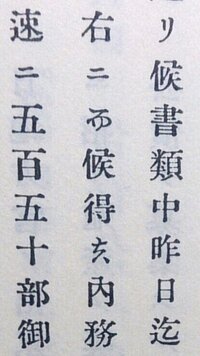 リ候書類中昨日迄
右ニ而候得共内務
速ニ五百五十部御